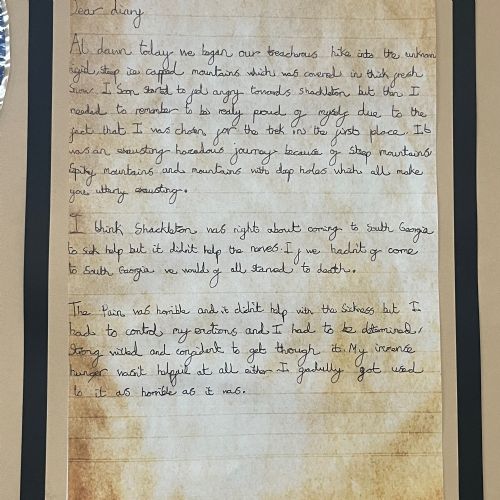 Dear diary
At dawn today we began our treacherous hike into the unknown
rigid, steep ice capped mountains which was covered in thick fresh
snow. I soon started to get angry towards Shackleton but then I
needed to remember to be really proud of myself due to the
fact that I was chosen for the trek in the first place. It
was an exausting hazardous journey because of steep mountains
spiky mountains and mountains with deep holes which all make
you utterly exausting.
I think Shackleton was right about coming to South Georgia
to seek help but it didn't help the nerves. If we hadn't of come
to South Georgia we would of all starved to death.
The Pain was horrible and it didn't help with the sickness but I
had to control my emotions and I had to be determined,
strong willed and confident to get through it. My immense
hunger wasn't helpful at all either I gadully got used
to it as horrible as it was.